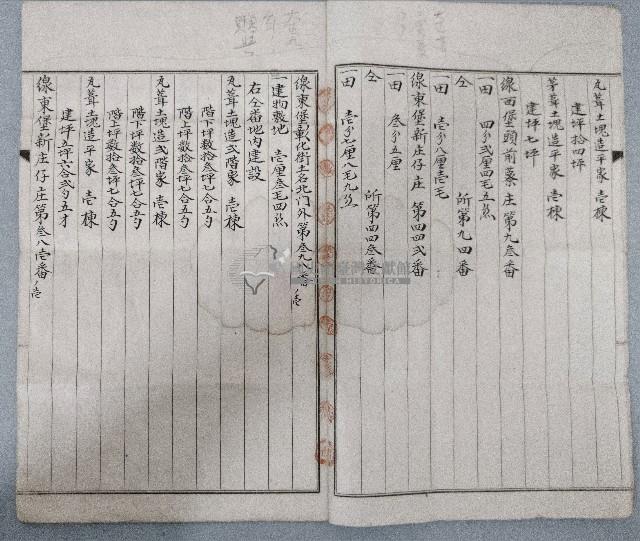 瓦葺土塊造平家 壱棟
建坪拾四坪
茅葺土塊造平家 壱棟
建坪七坪
線西堡頭前藔庄第九叁番
一田 四分弐厘四毛五糸
仝 所第九四番
一田 壱分八厘壱毛
線東堡新庄仔庄 第四四弐番
一田 叁分五厘
仝 所第四四叁番
一田 壱分七厘八毛九糸
線東堡彰化街土名北門外第叁九八番ノ壱
一建物敷地 壱厘叁毛四糸
右仝番地内建設
瓦葺土塊造弐階家 壱棟
階下坪数拾叁坪七合五勺
階上坪数拾叁坪七合五勺
瓦葺土塊造弐階家 壱棟
階下坪数拾叁坪七合五勺
階上坪数拾叁坪七合五勺
瓦葺土塊造平家 壱棟
建坪五坪六合弐勺五才
線東堡新庄仔庄第叁八壱番ノ壱
臺灣文獻館
HISTORICA